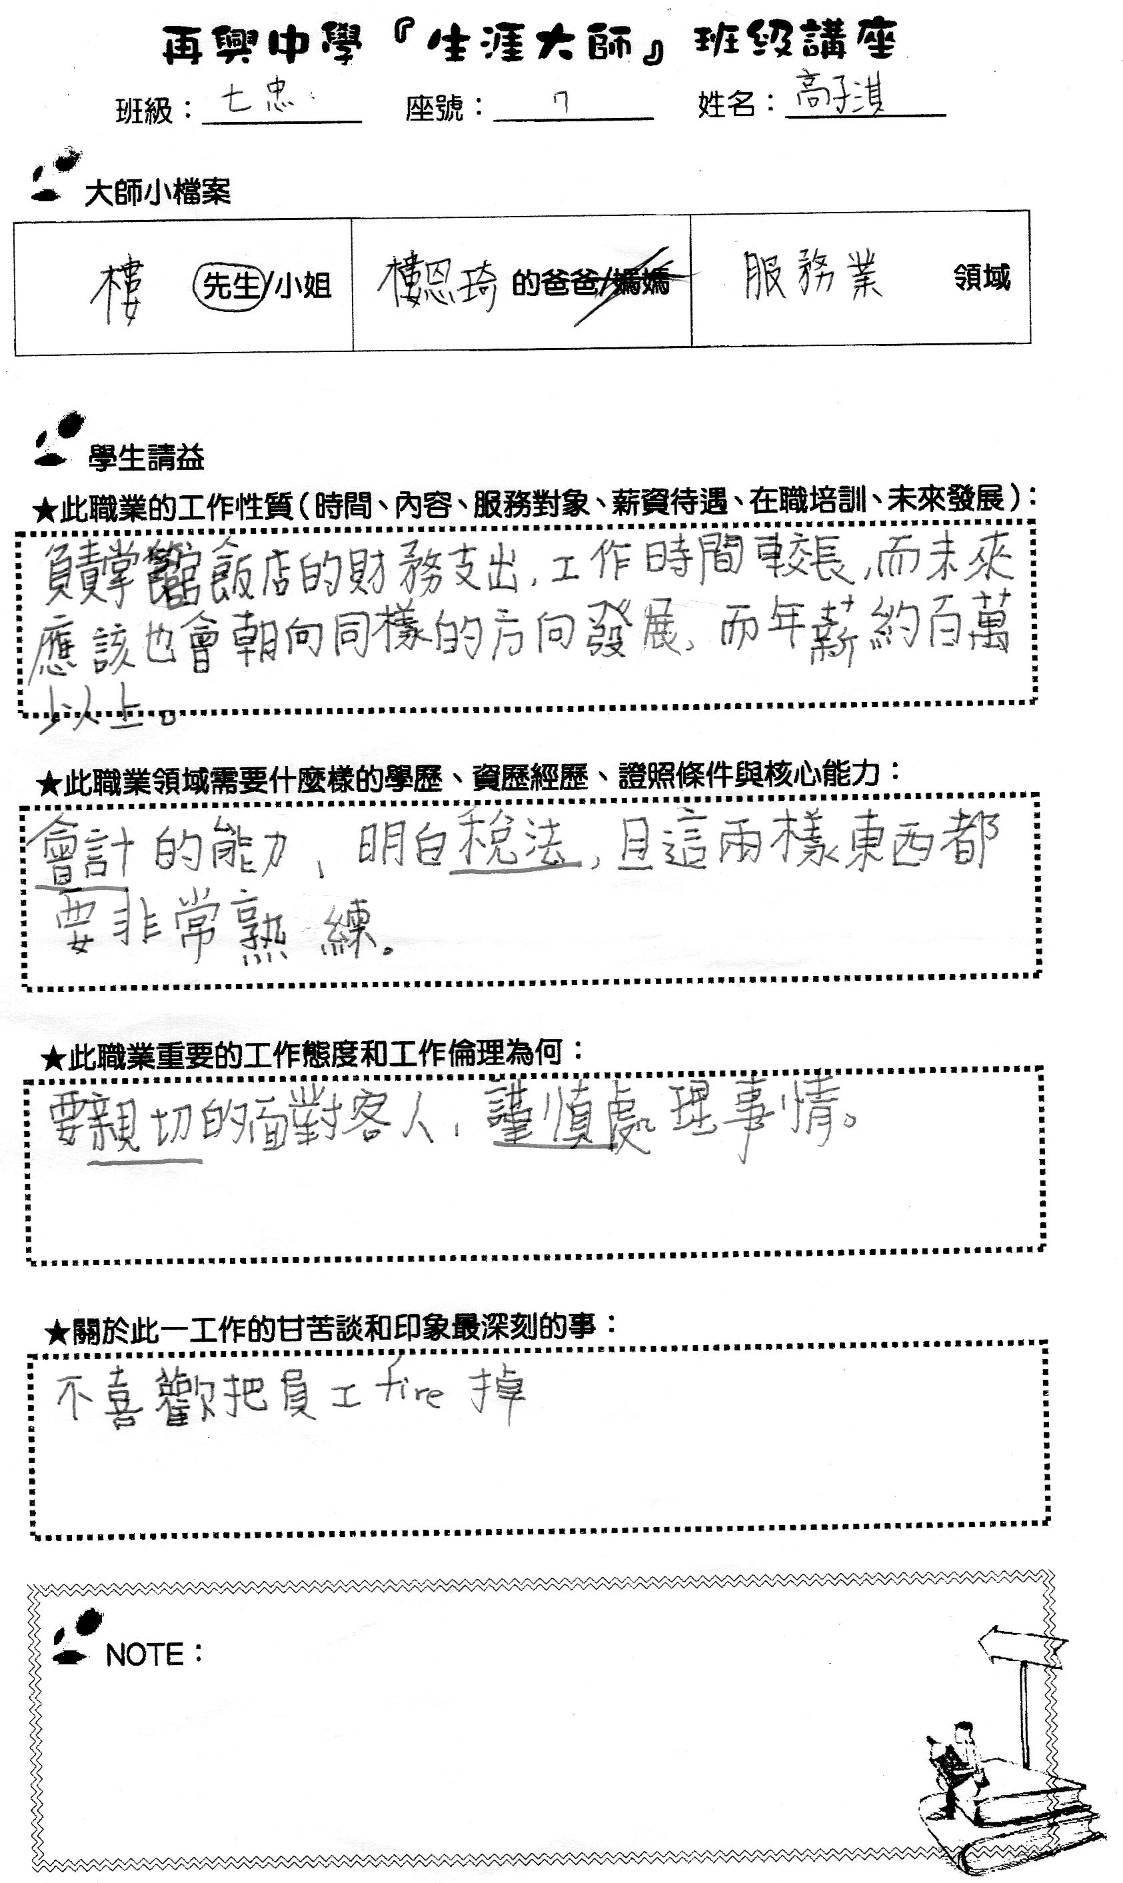 再興中學『生涯大師』班級講座
班級：七忠 座號：7 姓名：高子淇
大師小檔案
樓 先生/小姐 樓恩琦 的爸爸/媽媽 服務業 領域
學生請益
★此職業的工作性質（時間、內容、服務對象、薪資待遇、在職培訓、未來發展）：
負責掌管飯店的財務支出，工作時間較長，而未來
應該也會朝向同樣的方向發展，而年薪約百萬
以上。
★此職業領域需要什麼樣的學歷、資歷經歷、證照條件與核心能力：
會計的能力，明白稅法，且這兩樣東西都
要非常熟練。
★此職業重要的工作態度和工作倫理為何：
要親切的面對客人，謹慎處理事情。
★關於此一工作的甘苦談和印象最深刻的事：
不喜歡把員工fire掉
NOTE：